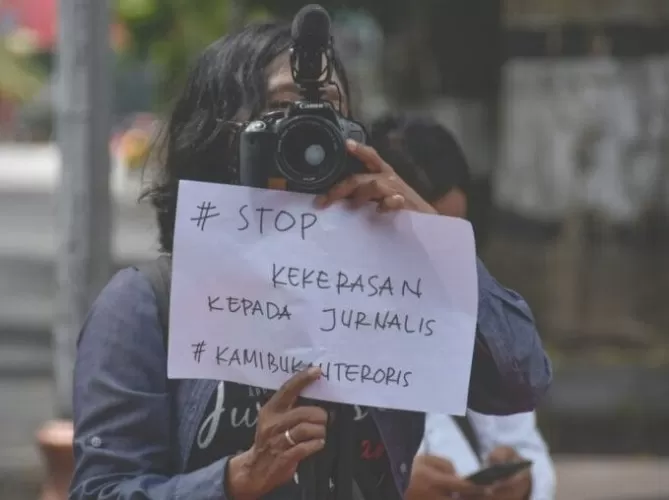 Canon
# STOP
KEKERASAN
KEPADA JURNALIS
# KAMIBUKANTERORIS